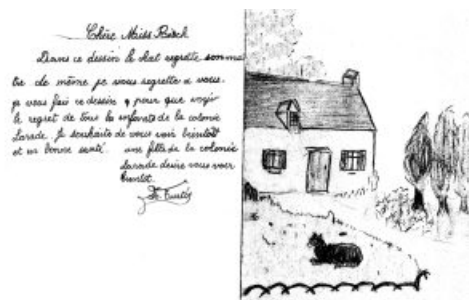 Chère Miss Resch
Dans ce dessin le chat regrette son maî
tre de même je vous regrette a vous.
je vous fais ce dessin pour que voyir
le regret de tous les enfants de la colonie
Larade. Je souhaite de vous voir brintôt
et en bonne santé. une fille de la colonie
Larade desire vous voir
bientot.